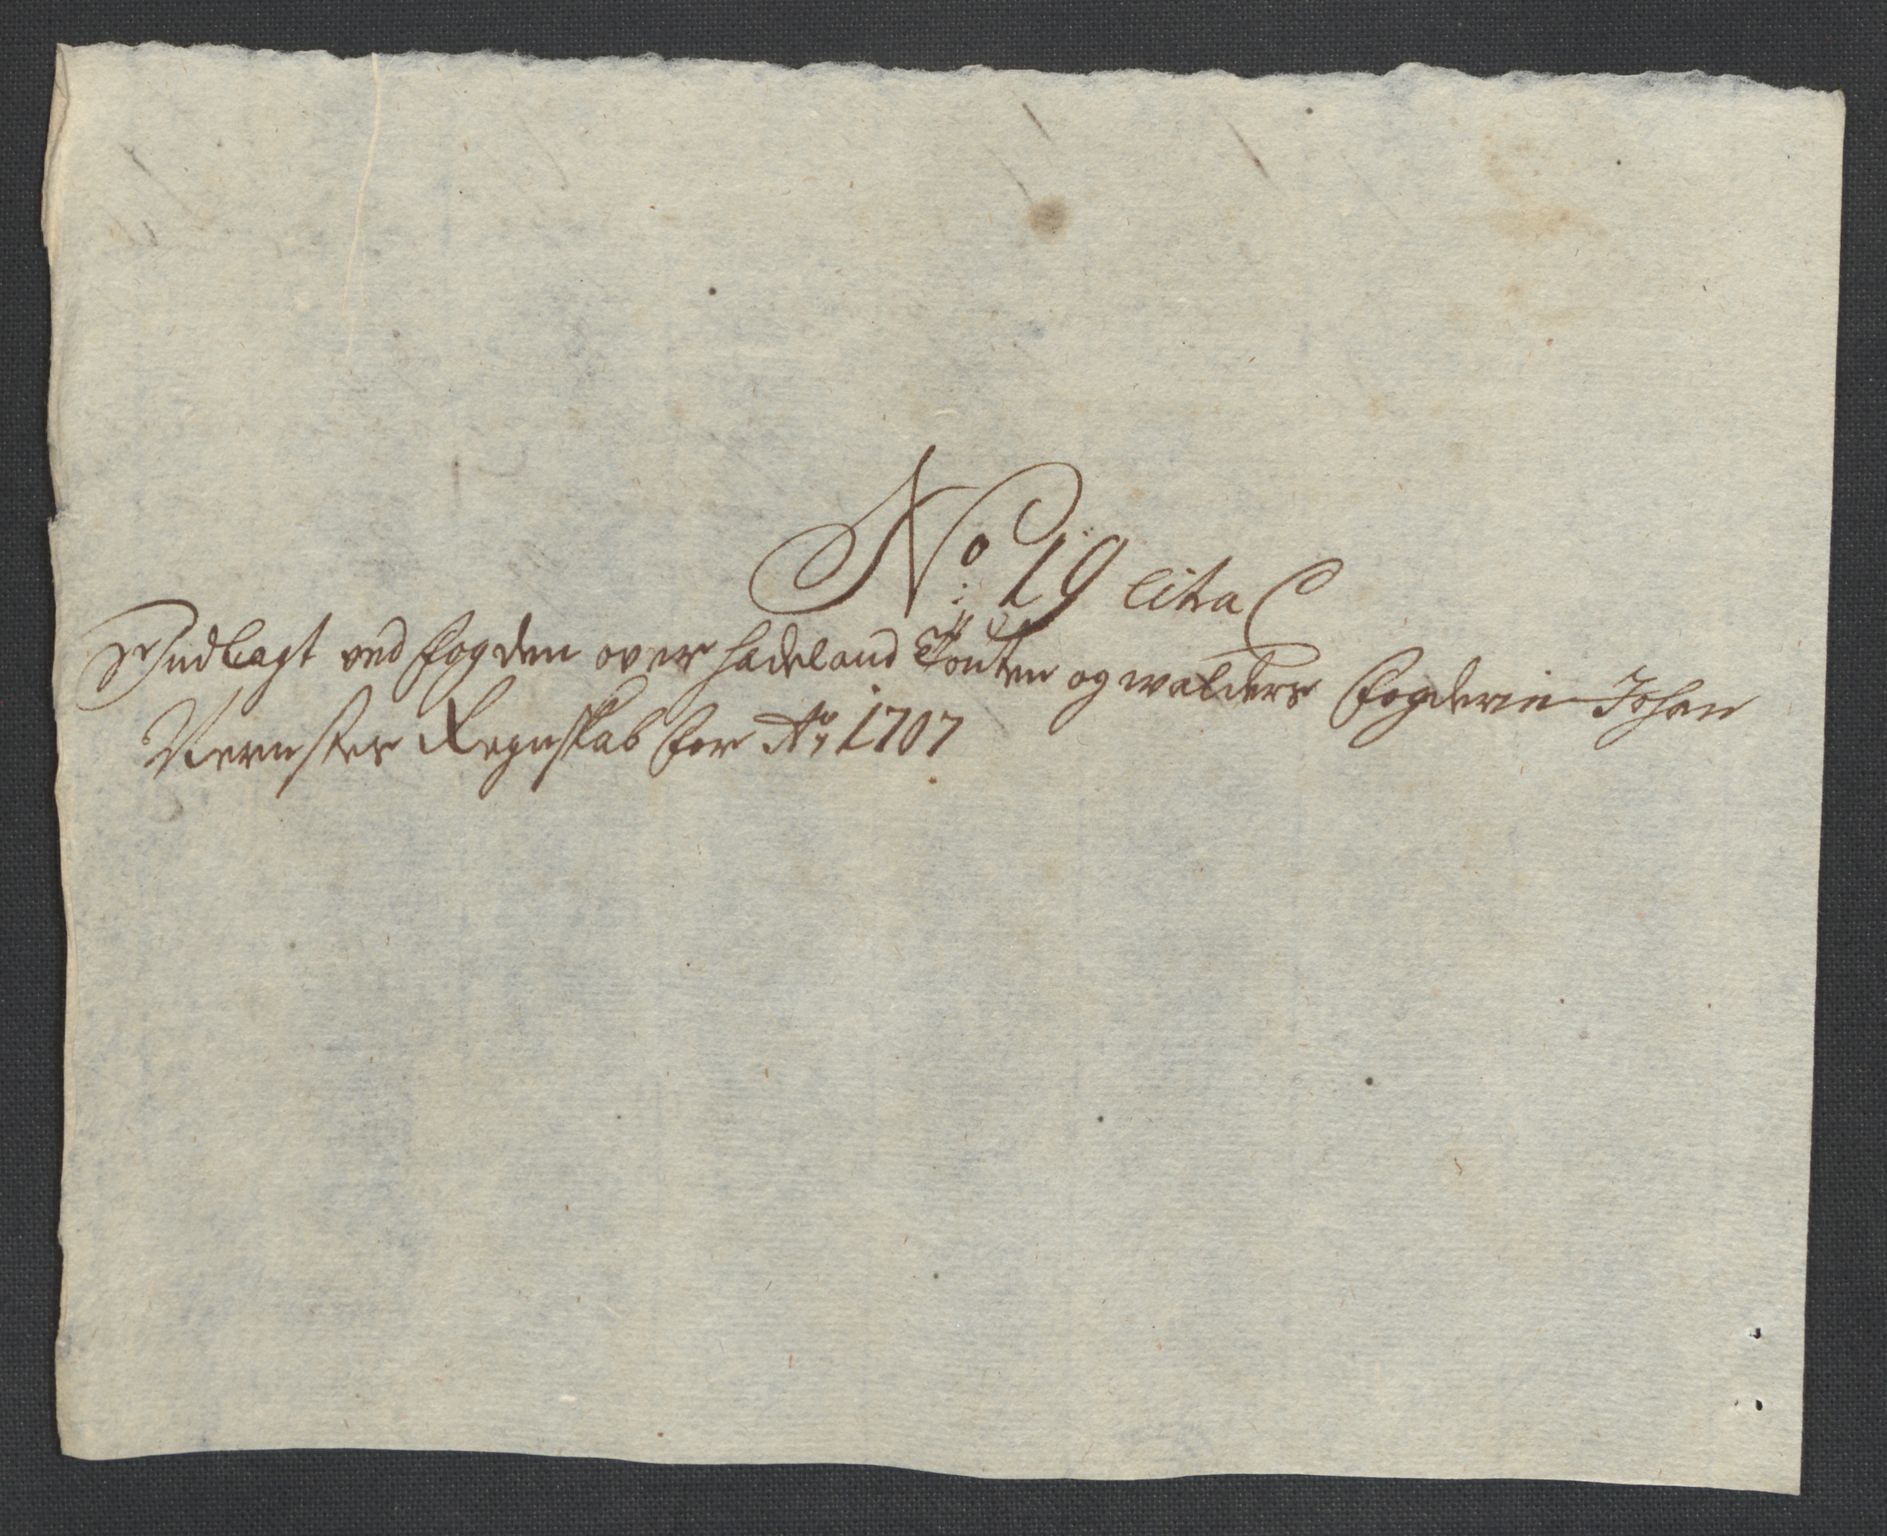 No: 19 Litra C
Indlagt ved fogden over Hadeland Touten og walders fogderie Johan
Vernstes Regnskab for Ao 1707